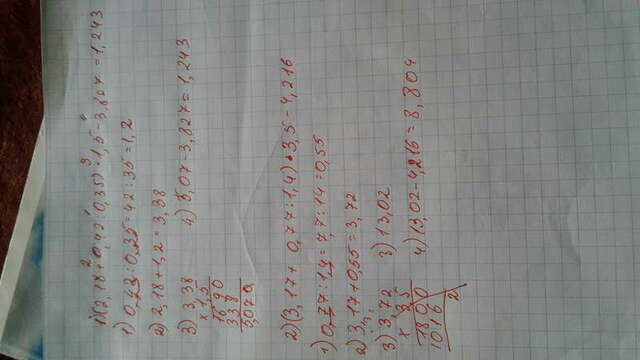 1)(2,18+0,42:0,35)·1,5-3,827=1,243
1) 0,42:0,35=42:35=1,2
2) 2,18+1,2=3,38
3) 3,38
× 1,5
1690
338
5,070
4) 5,07-3,827=1,243
2)(3,17+ 0,77:1,4)·3,5-4,216
1) 0,77:1,4=7,7:14=0,55
2) 3,17+0,55=3,72
3) 3,72
× 35
1800
1016
2
3) 13,02
4) 13,02-4,216=8,804